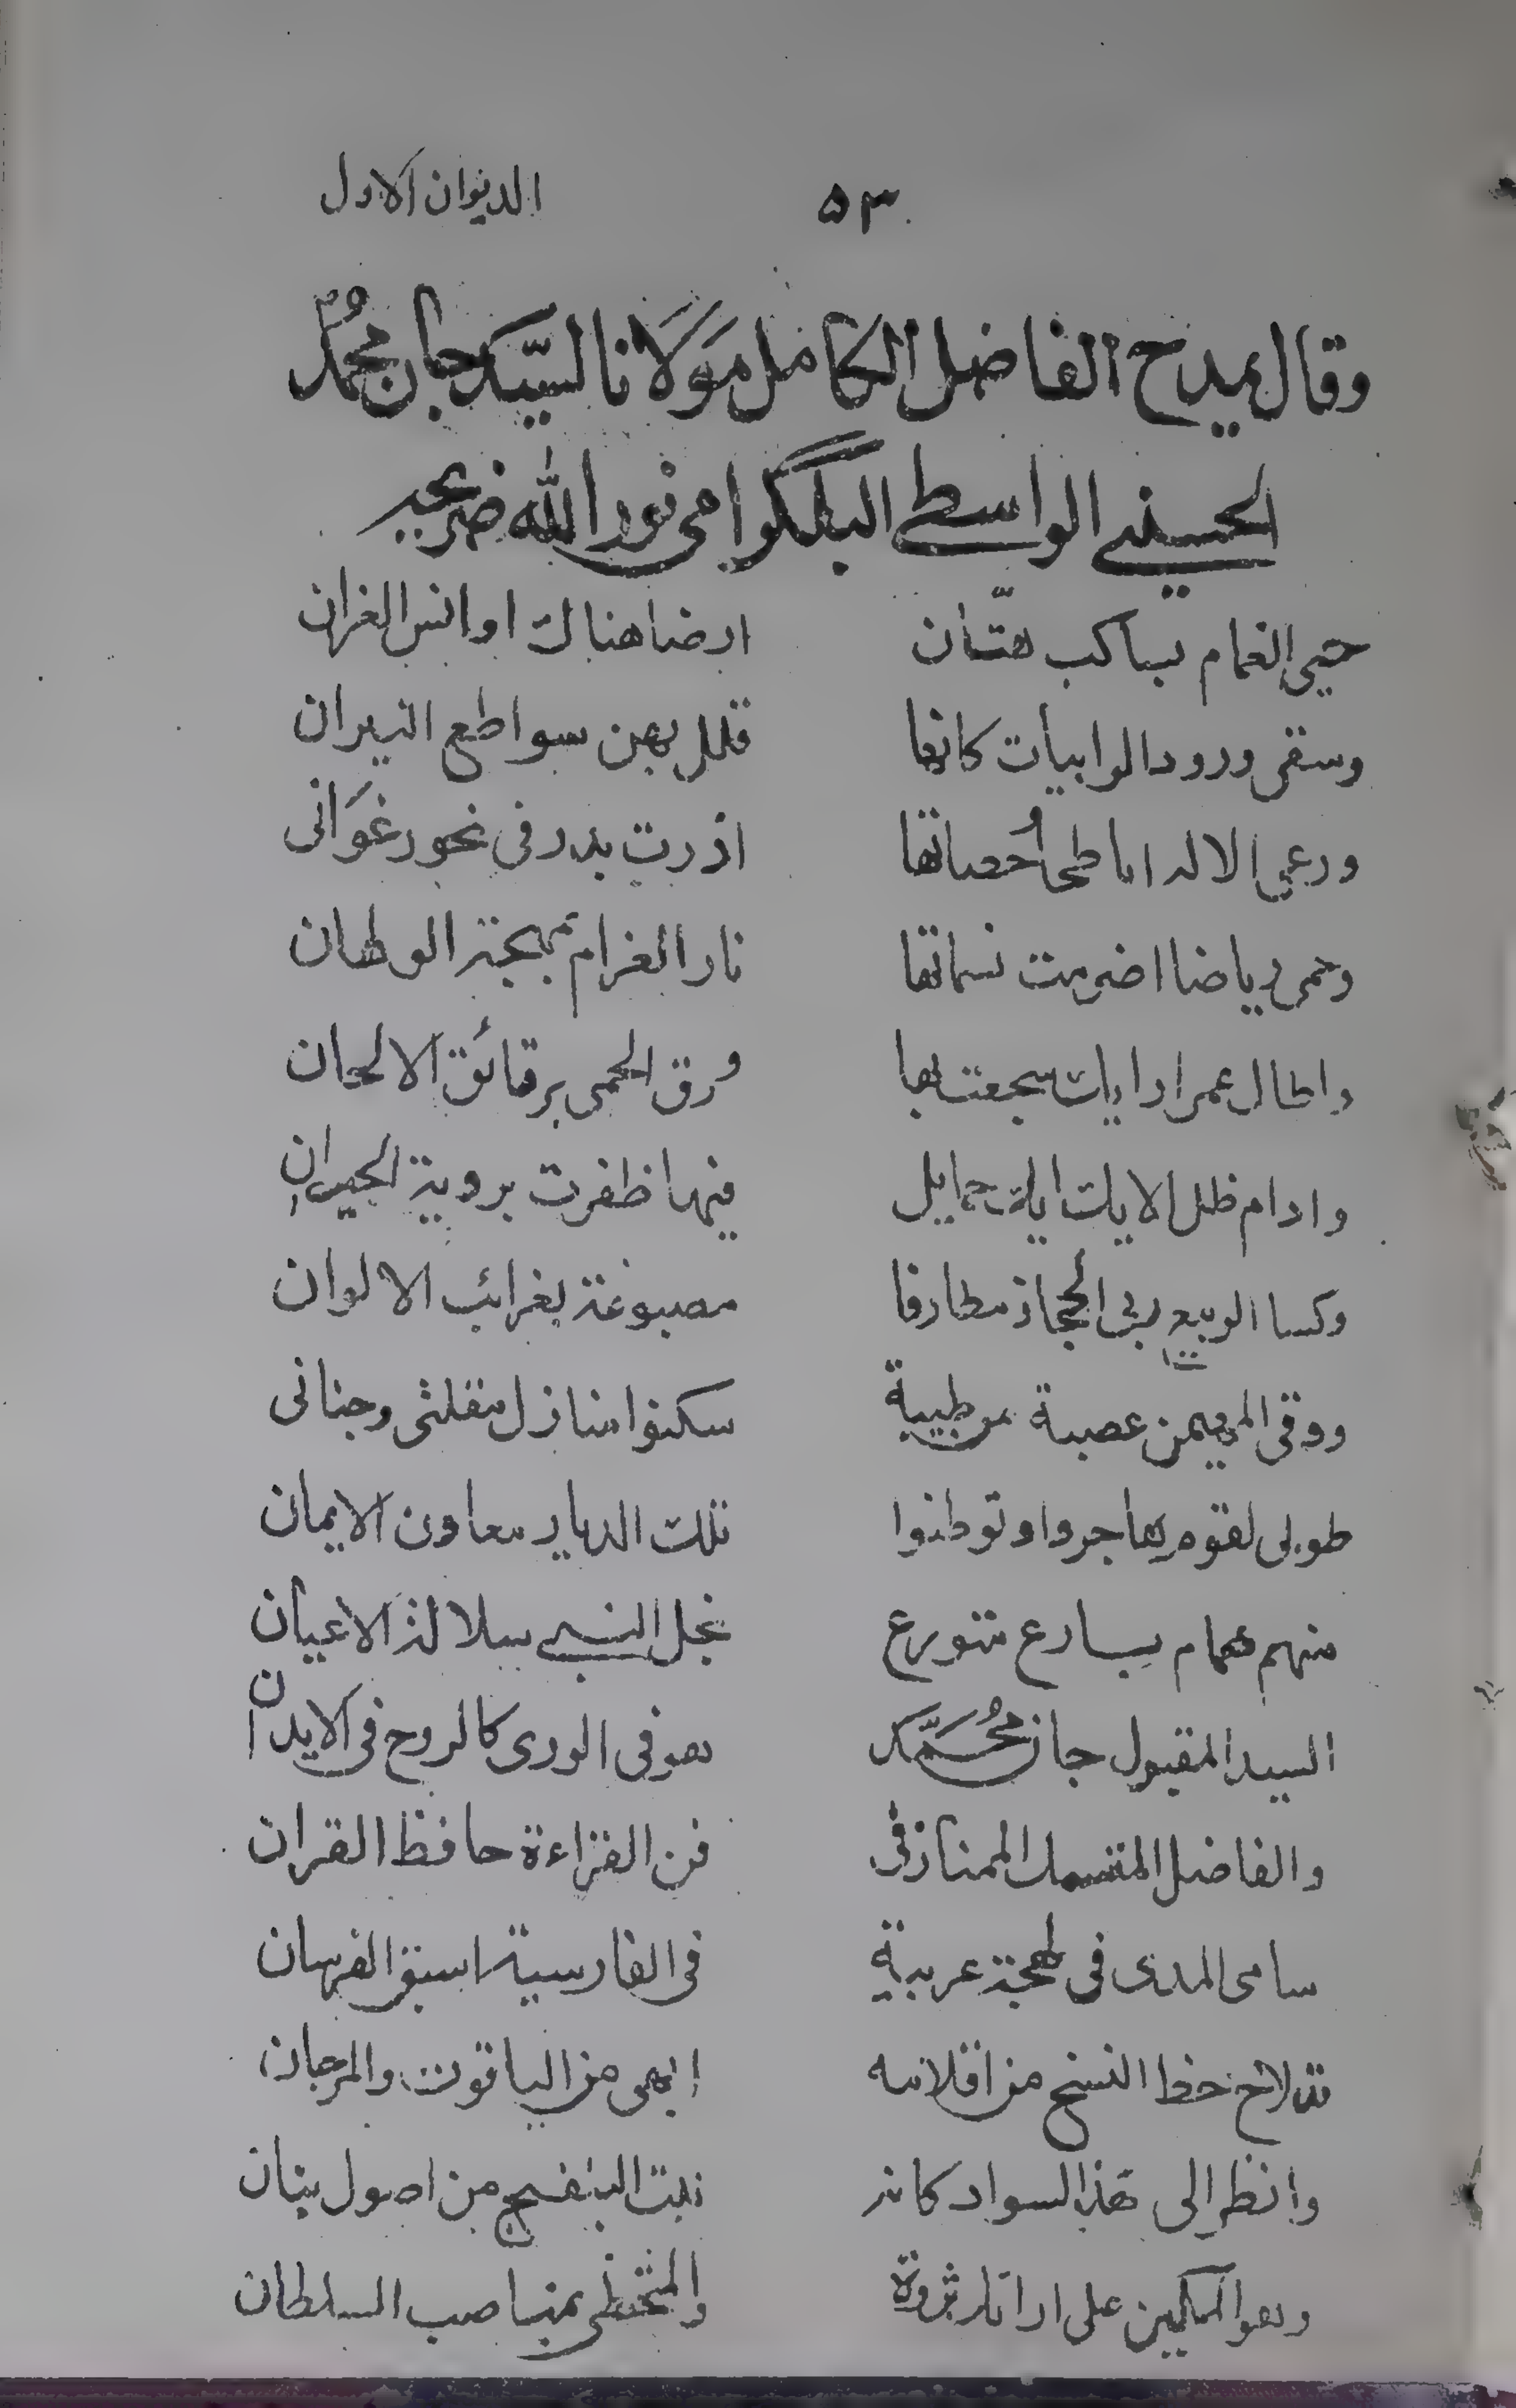 ٥٣ الديوان الاول
وقال يمدح الفاضل الكامل مَوْلَانا السيّد جان محمد
الحسيني الواسطي البلگرامي نور الله ضريحه
حيى الغمام بساكب هتّان ارضا هناك اوانس الغزلان
وسقى ورود الرابيات كانها قلل بهن سواطع النيران
ورعى الاله اباطحا حُصباتها ازرت بدر في نحور غَوَاني
وحمى رياضا اضرمت نسماتها نار الغرام بمهجة الولهان
واطال عمر اراكات سجعت بها ورق الحمى برقائق الالحان
وادام ظل الايك ايك خمايل فيها ظفرت بروية الجيران
وكسا الربيع ربى الحجاز مطارفا مصبوغة بغرائب الالوان
ووقى المهيمن عصبة من طيبة سكنوا منازل مقلتي وجناني
طوبى لقوم هاجروا وتوطنوا تلك الديار معادن الايمان
منهم همام بارع متورع نجل النبي سلالة الاعيان
السيد المقبول جان محُمَّد هو في الورى كالروح في الابدان
والفاضل المتنسك الممتاز في فن القراءة حافظ القران
سامى المدى في لهجة عربية في الفارسية اسبق الفرسان
قد لاح خط النسخ من اقلامه ابهى من الياقوت والمرجان
وانظر الى هذا السواد كانه نبت البنفسج من اصول بنان
وهو المكين على ارائك ثروة والمحتظى بمناصب السلطان